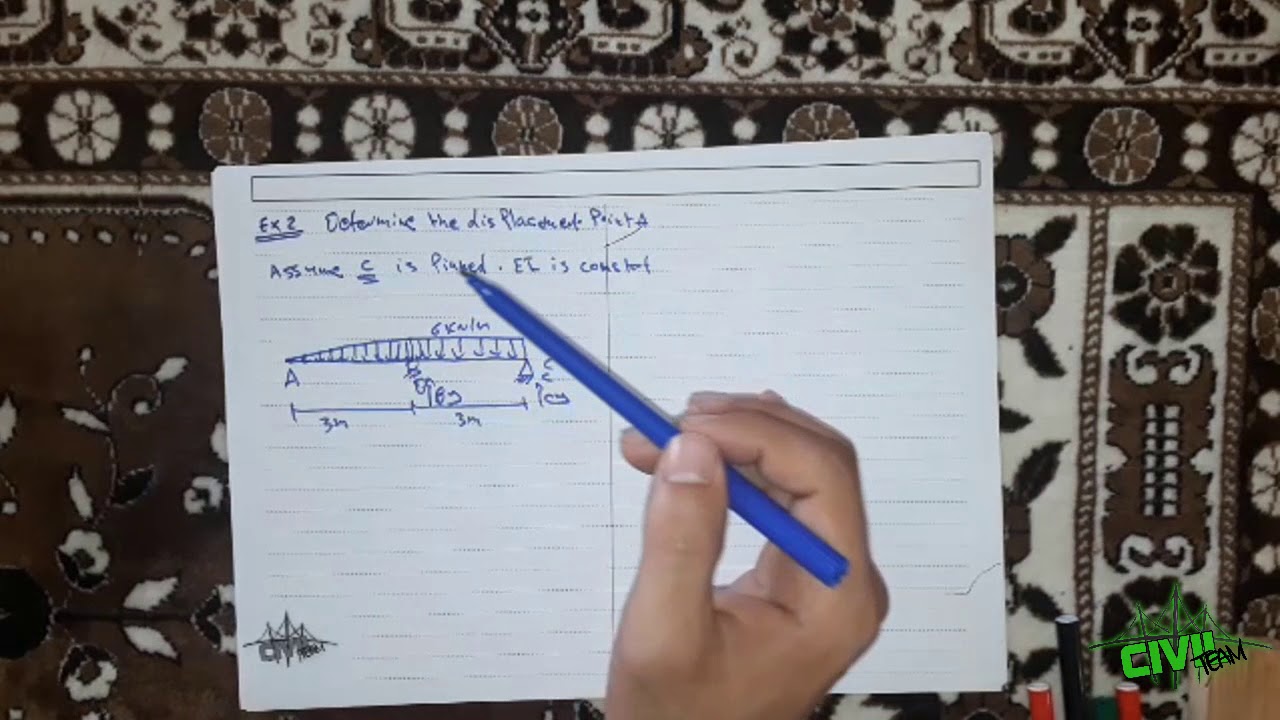 Ex 2 Determine the displacement Point A
Assume C is Pinned. EI is constat
6 kN/m
A
By
C
Cy
3m
3m
CIVIL
TEAM